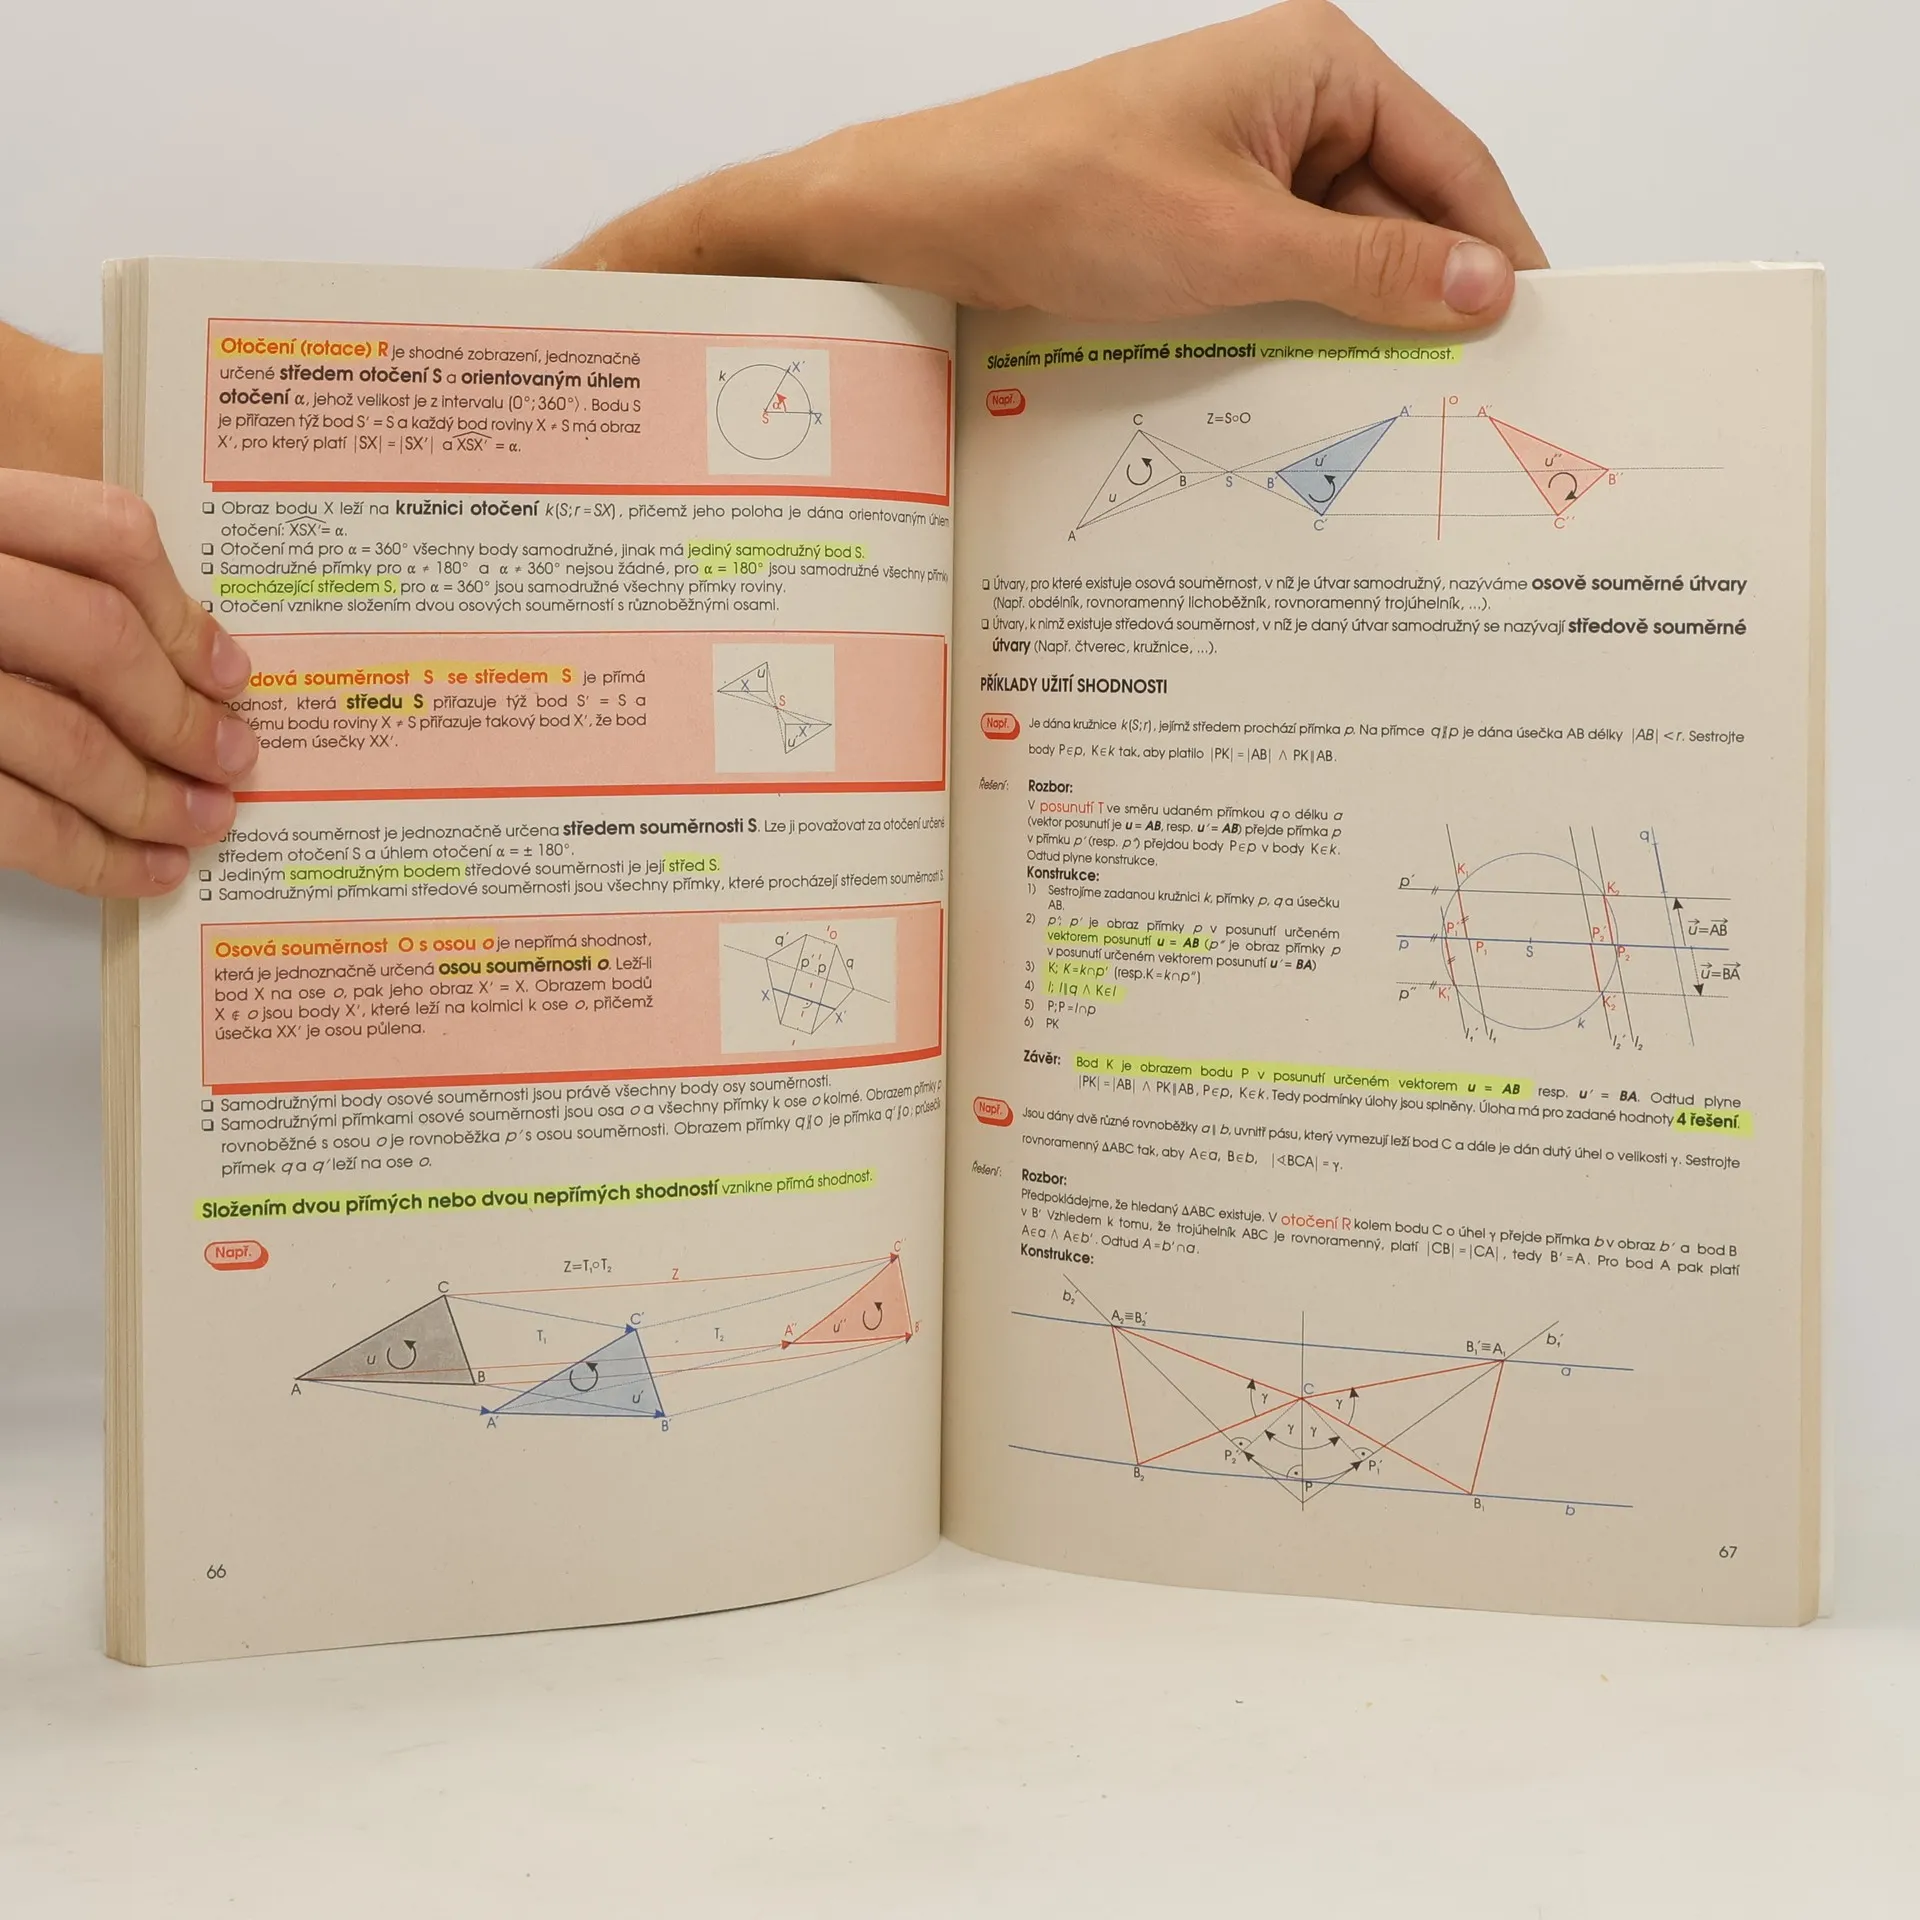 Otočení (rotace) R je shodné zobrazení, jednoznačně
určené středem otočení S a orientovaným úhlem
otočení α, jehož velikost je z intervalu (0°; 360°⟩. Bodu S
je přiřazen týž bod S' = S a každý bod roviny X ≠ S má obraz
X', pro který platí |SX| = |SX'| a XSX' = α.
k
X'
α
S
X
❑ Obraz bodu X leží na kružnici otočení k(S; r = SX), přičemž jeho poloha je dána orientovaným úhlem
otočení: XSX' = α.
❑ Otočení má pro α = 360° všechny body samodružné, jinak má jediný samodružný bod S.
❑ Samodružné přímky pro α ≠ 180° a α ≠ 360° nejsou žádné, pro α = 180° jsou samodružné všechny přímky
procházející středem S, pro α = 360° jsou samodružné všechny přímky roviny.
❑ Otočení vznikne složením dvou osových souměrností s různoběžnými osami.
dová souměrnost S se středem S je přímá
hodnost, která středu S přiřazuje týž bod S' = S a
ému bodu roviny X ≠ S přiřazuje takový bod X', že bod
ředem úsečky XX'.
u
X
S
u'
X'
Středová souměrnost je jednoznačně určena středem souměrnosti S. Lze ji považovat za otočení určené
středem otočení S a úhlem otočení α = ± 180°.
❑ Jediným samodružným bodem středové souměrnosti je její střed S.
❑ Samodružnými přímkami středové souměrnosti jsou všechny přímky, které procházejí středem souměrnosti S.
Osová souměrnost O s osou o je nepřímá shodnost,
která je jednoznačně určená osou souměrnosti o. Leží-li
bod X na ose o, pak jeho obraz X' = X. Obrazem bodů
X ∉ o jsou body X', které leží na kolmici k ose o, přičemž
úsečka XX' je osou půlena.
q'
o
p' p
q
X
X'
❑ Samodružnými body osové souměrnosti jsou právě všechny body osy souměrnosti.
❑ Samodružnými přímkami osové souměrnosti jsou osa o a všechny přímky k ose o kolmé. Obrazem přímky p
rovnoběžné s osou o je rovnoběžka p' s osou souměrnosti. Obrazem přímky q∦o je přímka q'∦o; průsečík
přímek q a q' leží na ose o.
Složením dvou přímých nebo dvou nepřímých shodností vznikne přímá shodnost.
Např.
Z=T₁∘T₂
Z
C
C'
C''
T₁
T₂
u
u'
u''
A
B
A'
B'
A''
B''
66
Složením přímé a nepřímé shodnosti vznikne nepřímá shodnost.
Např.
Z=S∘O
C
A'
O
A''
u
u'
u''
B
S
B'
B''
A
C'
C''
❑ Útvary, pro které existuje osová souměrnost, v níž je útvar samodružný, nazýváme osově souměrné útvary
(Např. obdélník, rovnoramenný lichoběžník, rovnoramenný trojúhelník, ...).
❑ Útvary, k nimž existuje středová souměrnost, v níž je daný útvar samodružný se nazývají středově souměrné
útvary (Např. čtverec, kružnice, ...).
PŘÍKLADY UŽITÍ SHODNOSTI
Např. Je dána kružnice k(S; r), jejímž středem prochází přímka p. Na přímce q∦p je dána úsečka AB délky |AB| < r. Sestrojte
body P∈p, K∈k tak, aby platilo |PK| = |AB| ∧ PK∥AB.
Řešení: Rozbor:
V posunutí T ve směru udaném přímkou q o délku a
(vektor posunutí je u = AB, resp. u' = AB) přejde přímka p
v přímku p' (resp. p'') přejdou body P∈p v body K∈k.
Odtud plyne konstrukce.
Konstrukce:
1) Sestrojíme zadanou kružnici k, přímky p, q a úsečku
AB.
2) p'; p' je obraz přímky p v posunutí určeném
vektorem posunutí u = AB (p'' je obraz přímky p
v posunutí určeném vektorem posunutí u' = BA)
3) K; K=k∩p' (resp. K=k∩p'')
4) l; l∥q ∧ K∈l
5) P; P=l∩p
6) PK
q
p'
K₁
K₂
u=AB
p
P₁'
P₁
S
P₂'
P₂
u=BA
p''
K₁'
K₂'
k
l₁' l₁
l₂' l₂
Závěr: Bod K je obrazem bodu P v posunutí určeném vektorem u = AB resp. u' = BA. Odtud plyne
|PK| = |AB| ∧ PK∥AB, P∈p, K∈k. Tedy podmínky úlohy jsou splněny. Úloha má pro zadané hodnoty 4 řešení.
Např. Jsou dány dvě různé rovnoběžky a∥b, uvnitř pásu, který vymezují leží bod C a dále je dán dutý úhel o velikosti γ. Sestrojte
rovnoramenný ΔABC tak, aby A∈a, B∈b, |∢BCA| = γ.
Řešení: Rozbor:
Předpokládejme, že hledaný ΔABC existuje. V otočení R kolem bodu C o úhel γ přejde přímka b v obraz b' a bod B
v B' Vzhledem k tomu, že trojúhelník ABC je rovnoramenný, platí |CB| = |CA|, tedy B' = A. Pro bod A pak platí
A∈a ∧ A∈b'. Odtud A = b'∩a.
Konstrukce:
b₂'
A₂≡B₂'
B₁'≡A₁
b₁'
a
C
γ
γ
γ γ
P₂'
P₁'
B₂
P
B₁
b
67